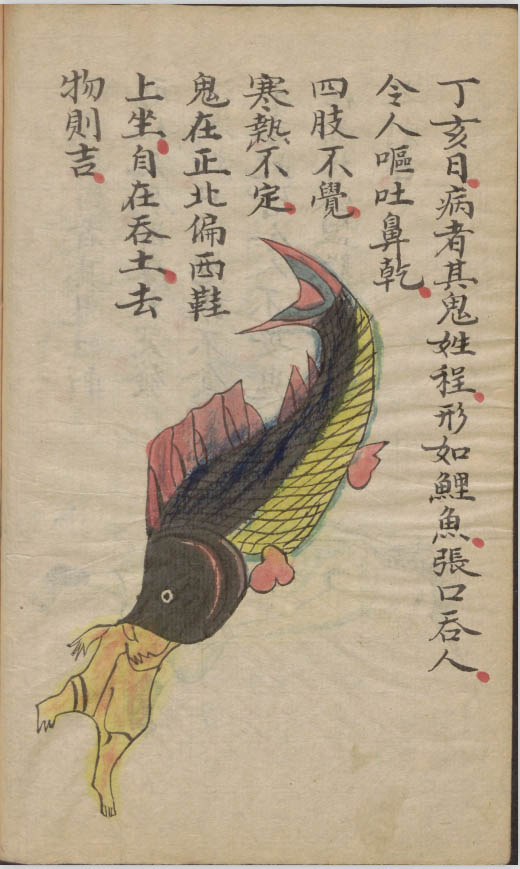 丁亥日病者其鬼姓程形如鯉魚張口吞人
令人嘔吐鼻乾
四肢不覺
寒熱不定
鬼在正北偏西鞋
上坐自在吞土去
物則吉